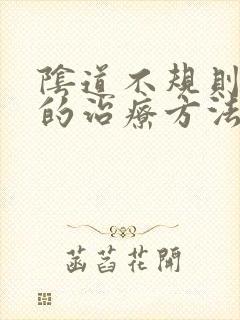 陰道不規則
的治療方法
菡萏花開